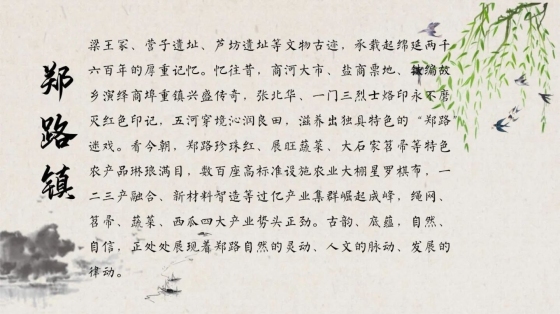 郑路镇
梁王冢、营子遗址、芦坊遗址等文物古迹，承载起绵延两千
六百年的厚重记忆。忆往昔，商河大市、盐商票地、编故
乡演绎商埠重镇兴盛传奇，张北华、一门三烈士烙印永不磨
灭红色印记，五河穿境沁润良田，滋养出独具特色的“郑路
迷戏。看今朝，郑路珍珠红、展旺蔬菜、大石家笤帚等特色
农产品琳琅满目，数百座高标准设施农业大棚星罗棋布，一
二三产融合、新材料智造等过亿产业集群崛起成峰，绳网、
笤帚、蔬菜、西瓜四大产业势头正劲。古韵、底蕴，自然、
自信，正处处展现着郑路自然的灵动、人文的脉动、发展的
律动。